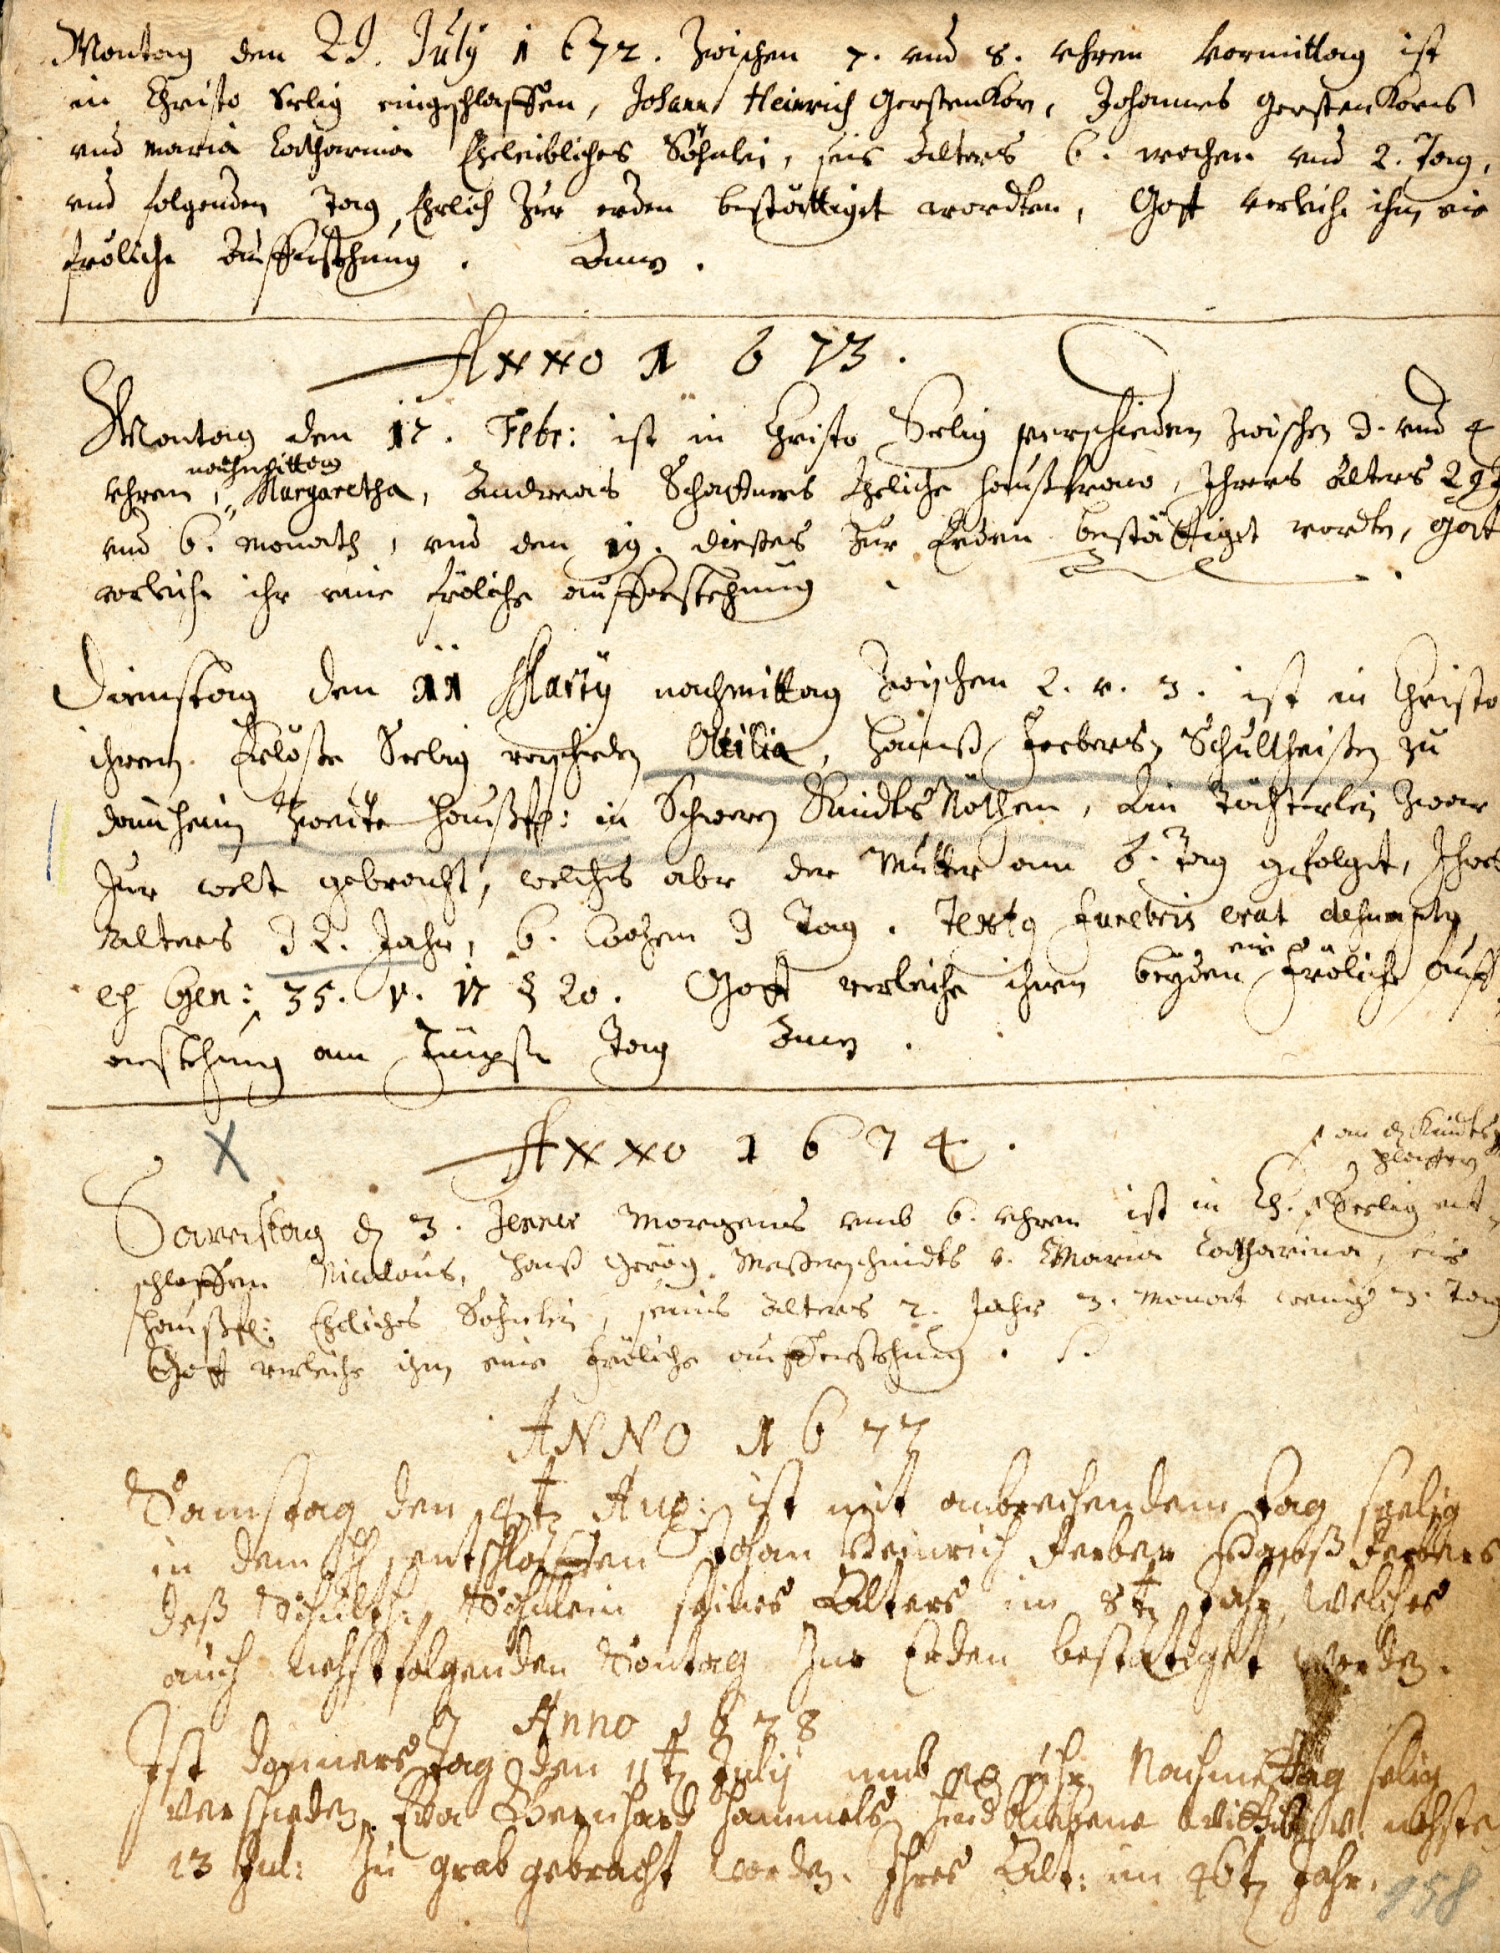 Montag den 29. July 1672. Zwischen 7. vnd 8. vhren vormittag ist
in Christo Selig eingeschlaffen, Johann Heinrich Gerstenkorn, Johannes Gerstenkorns
vnd Maria Catharina Eheleibliches Söhnlein, seis Alters 6. wochen vnd 2. Tag,
vnd folgenden Tag Ehrlich Zur erden bestättiget wordten, Gott verleihe ihm eie
fröliche Aufferstehung. Amen.
Anno 1673.
Montag den 17. Febr: ist in Christo Selig verschieden zwischen 3. vnd 4
nachmittag
vhren, Margaretha, Andreas Schaffners Eheliche haußfraw, Ihrers Alters 29 J
vnd 6. Monath, vnd den 19. dießes Zur Erden bestättiget wordten, Gott
verleihe ihr eine fröliche aufferstehung.
Dienstag den 11 Marty nachmittag Zwischen 2. v. 3. ist in Christo
ihrem Erlößer Seelig verschieden Ottilia, Hannß Ferbers Schultheißen zu
dauheim Zweite haußfr: in Schweren Kindts Nöthen, Ein Töchterlein Zwar
Zur welt gebracht, welches aber der Mutter am 6. Tag gefolget, Ihres
Alters 32. Jahr, 6. Wochen 3 Tag. Textus funebris erat desumptus
eine
ex Gen: 35. v. 17 20. Gott verleihe ihnen beyden fröliche Auff
erstehung am Jüngste Tag Amen.
Anno 1674.
an den Kindts
plattern
Samstag d 3. Jenner Morgens vmb 6. vhren ist in Ch. Seelig ent
schlaffen Nicolaus, Hanß Georg Meßerschmidts v. Maria Catharina, eie
haußfr: Eheliches Söhnlein, seines Alters 2. Jahr 3. Monat wenig 3. Tag
Gott verleihe ihm eine fröliche aufferstehung.
ANNO 1677
Samstag den 4t Aug: ist mit anbrechendem tag seelig
in dem H entschlaffen Johan Heinrich Ferber Hanß Ferbers
deß Schulth: Söhnlein seines Alters im 8t Jahr, Welches
auch nechstfolgenden Sontag Zur Erden bestätiget worden.
Anno 1678
Ist Donners Tag den 11t July vmb Uhr Nachmittag selig
verschieden Eva Bernhard Hammels hindbliebene Wittib v. nechste
13 Jul: Zu grab gebracht worden. Ihres Alt: im 46t Jahr.
958